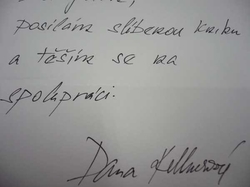 posílám slíbenou knihu
a těším se na
spolupráci.
Dana